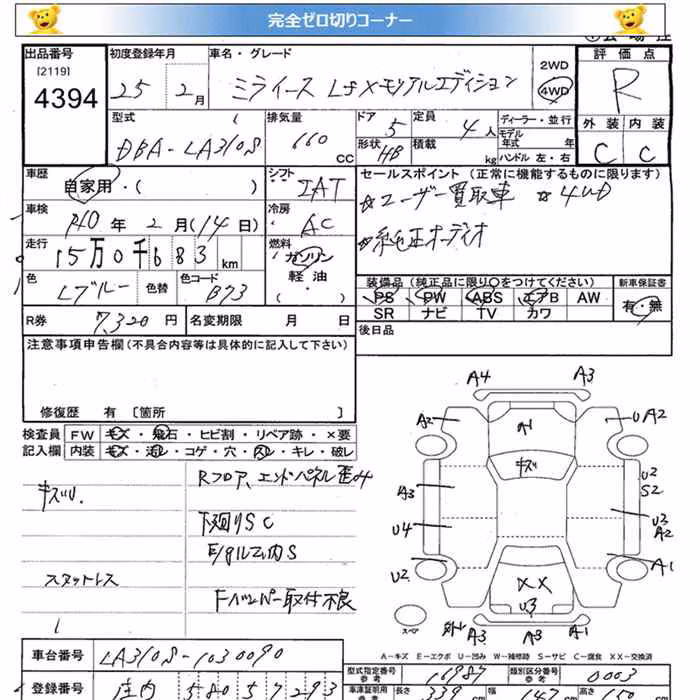 完全ゼロ切りコーナー
出品番号 初度登録年月 車名・グレード 2WD 4WD 評価点
[2119]
4394 25 2月 ミライース LfXメモリアルエディション R
型式 排気量 ドア 定員 ディーラー・並行
DBA-LA310S 660 CC 5 4人 モデル年式 年
形状 HB 積載 kg ハンドル 左・右
外装 内装
C C
車歴 シフト セールスポイント (正常に機能するものに限ります)
自家用・( ) IAT ☆ユーザー買取車 ☆4WD
車検 冷房
R10年2月(14日) AC ☆純正オーディオ
走行 燃料
15万0千683km ガソリン
色 色替 色コード 軽油
Lブルー B73 ・( )
装備品 (純正品に限り○をつけてください) 新車保証書
PS PW ABS エアB AW 有・無
SR ナビ TV カワ
R券 7,320円 名変期限 月 日
後日品
注意事項申告欄(不具合内容等は具体的に記入して下さい)
修復歴 有 [箇所 ]
検査員 FW キズ・飛石・ヒビ割・リペア跡・×要
記入欄 内装 キズ・汚レ・コゲ・穴・スレ・キレ・破レ
Rフロア、エンドパネル歪み
キズU.
下廻りSC
E/gルム内S
スタットレス
Fバンパー取付不良
A4 A3
A2 A1 U A2
キズ
A3 U2 S2
U4 U3 A2
U2 A1
XX
U3
スペア 外 A3 A3 A1
A-キズ E-エクボ U-凹み W-補修跡 S-サビ C-腐食 XX-交換済
車台番号 LA310S-1030090
型式指定番号 参考 16987 類別区分番号 参考 0003
登録番号 庄内 580 う 7293
車庫証明用 参考 長さ 339 cm 幅 147 cm 高さ